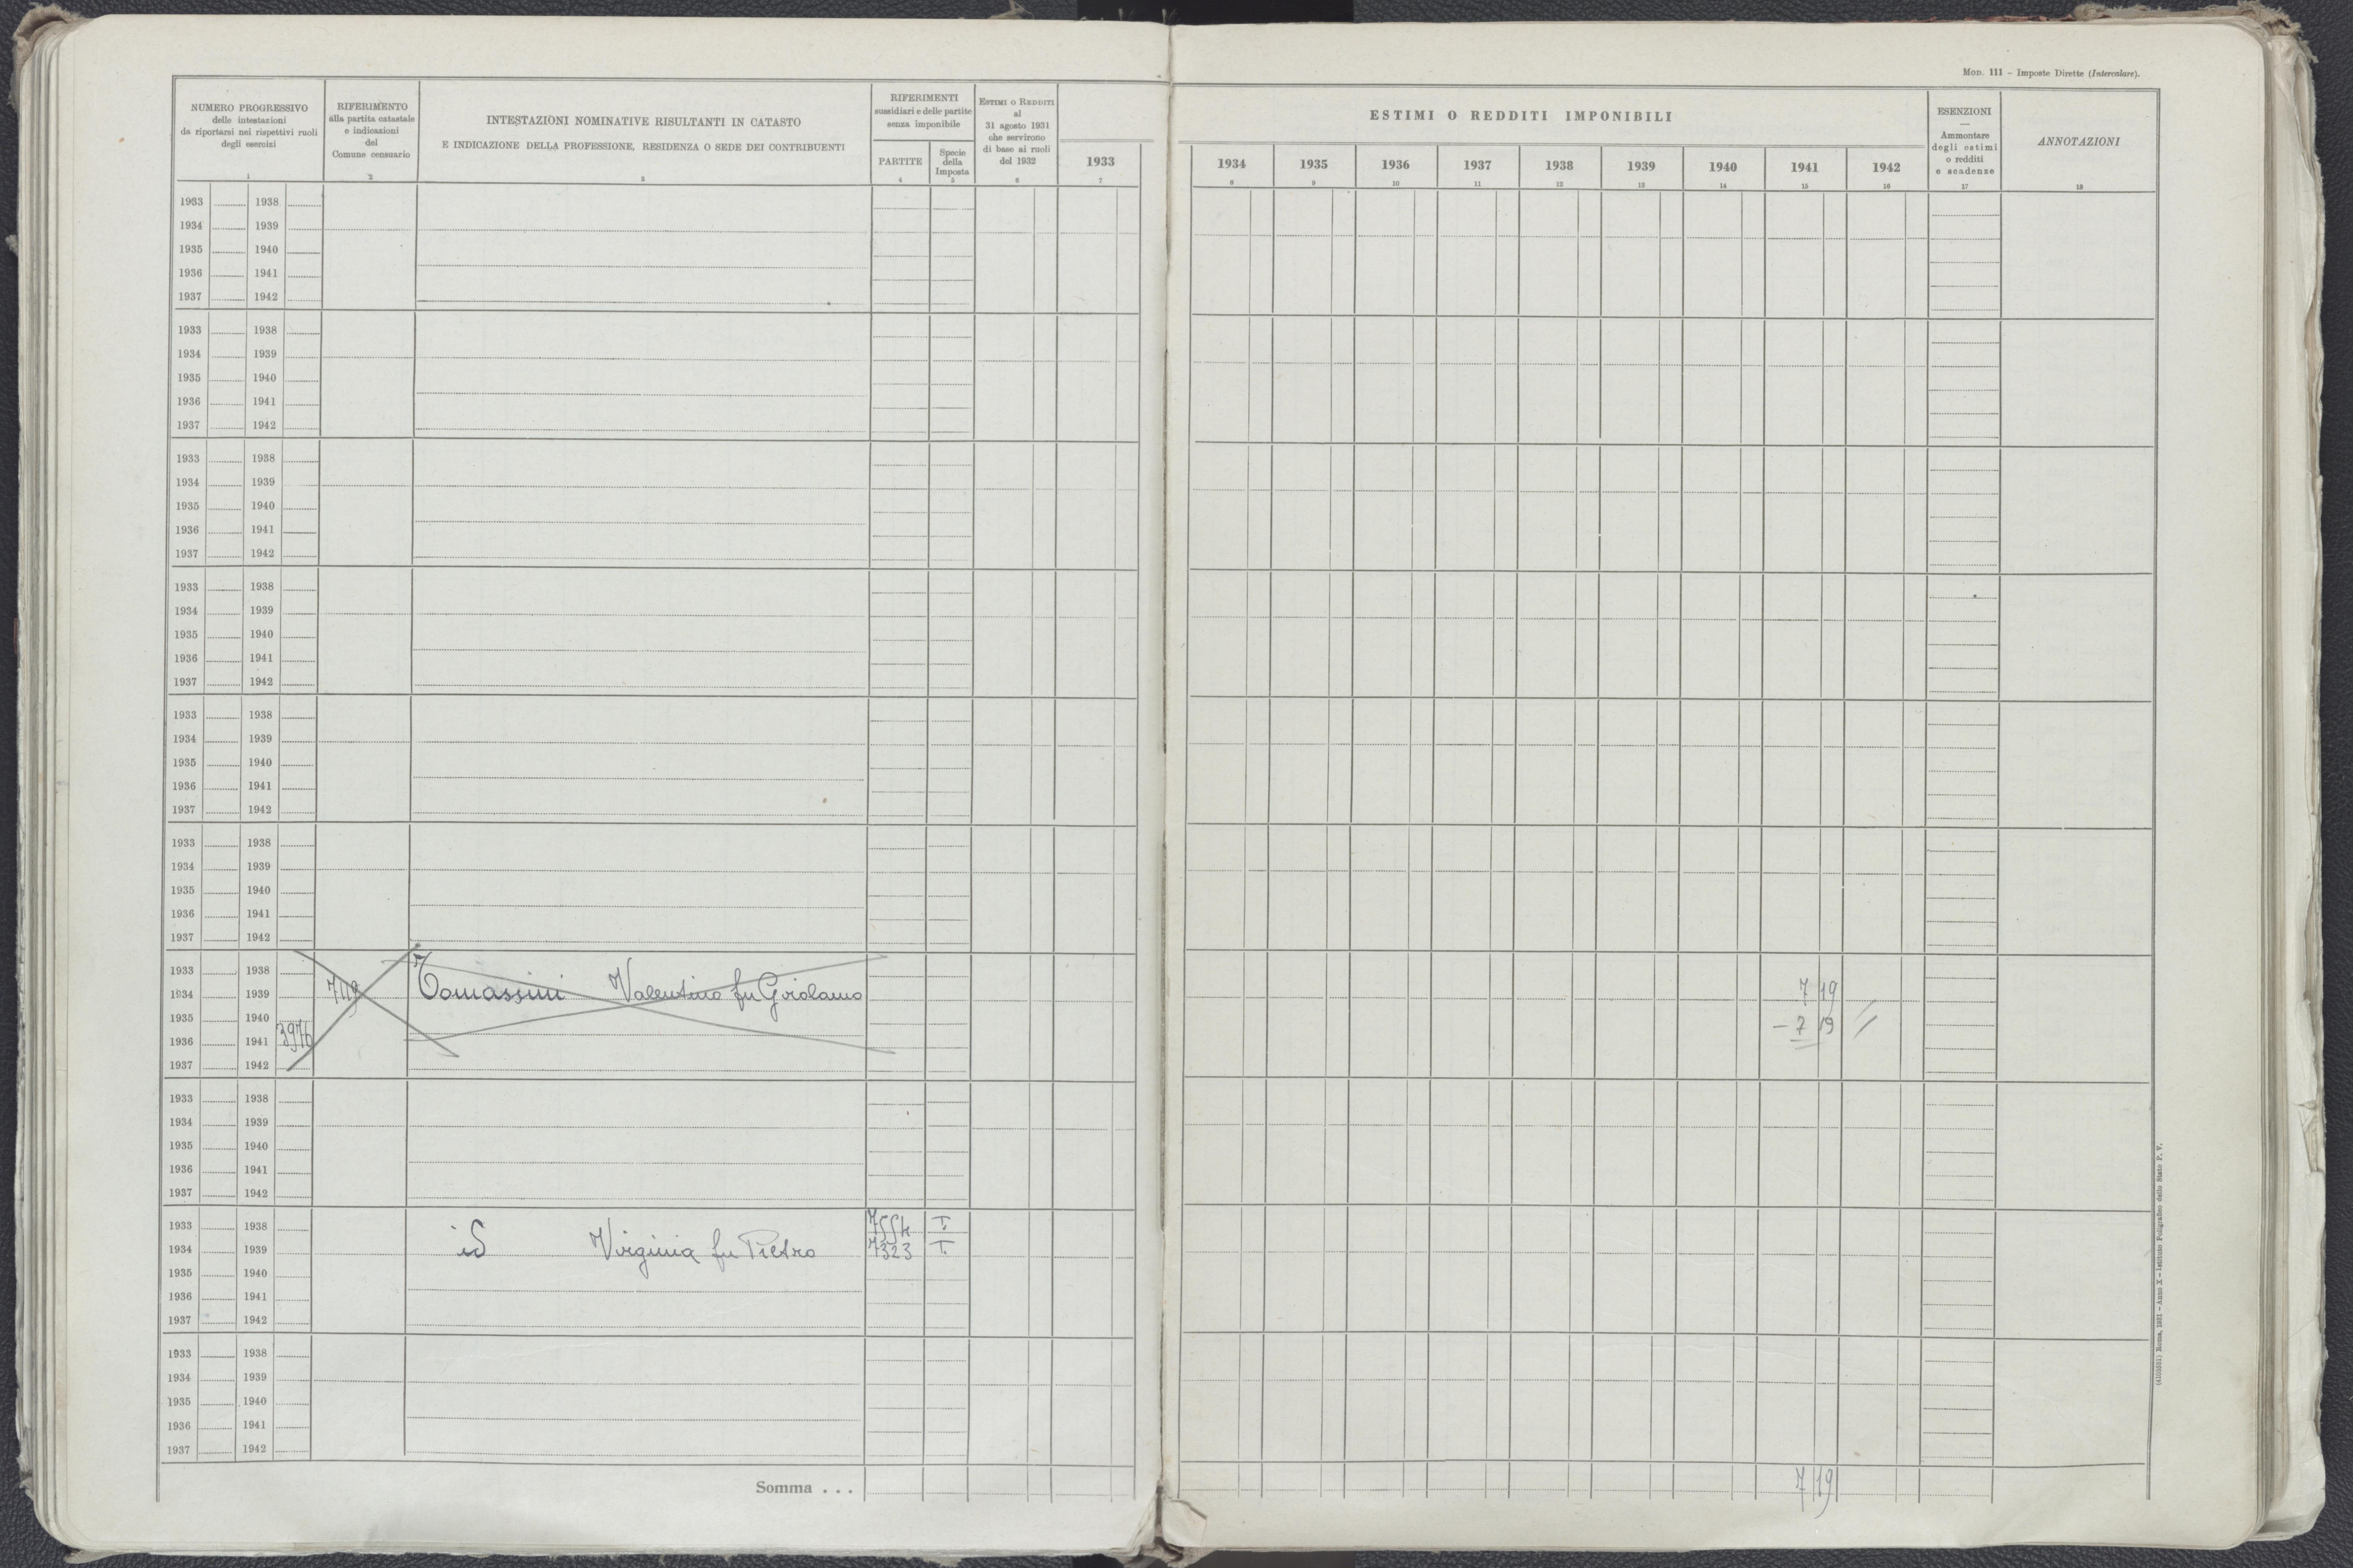 MOD. 111 – Imposte Dirette (Intercalare).
NUMERO PROGRESSIVO
delle intestazioni
da riportarsi nei rispettivi ruoli
degli esercizi
1
RIFERIMENTO
alla partita catastale
e indicazioni
del
Comune censuario
2
INTESTAZIONI NOMINATIVE RISULTANTI IN CATASTO
E INDICAZIONE DELLA PROFESSIONE, RESIDENZA O SEDE DEI CONTRIBUENTI
3
RIFERIMENTI
sussidiari e delle partite
senza imponibile
PARTITE
4
Specie
della
Imposta
5
ESTIMI O REDDITI
al
31 agosto 1931
che servirono
di base ai ruoli
del 1932
6
1933
7
ESTIMI O REDDITI IMPONIBILI
1934 1935 1936 1937 1938 1939 1940 1941 1942
8 9 10 11 12 13 14 15 16
ESENZIONI
—
Ammontare
degli estimi
o redditi
e scadenze
17
ANNOTAZIONI
18
1933 1938
1934 1939
1935 1940
1936 1941
1937 1942
1933 1938
1934 1939
1935 1940
1936 1941
1937 1942
1933 1938
1934 1939
1935 1940
1936 1941
1937 1942
1933 1938
1934 1939
1935 1940
1936 1941
1937 1942
1933 1938
1934 1939
1935 1940
1936 1941
1937 1942
1933 1938
1934 1939
1935 1940
1936 1941
1937 1942
1933 1938
1934 1939 7119 Tomassini Valentino fu Girolamo 7 19
1935 1940 – 7 19
1936 1941 3976
1937 1942
1933 1938
1934 1939
1935 1940
1936 1941
1937 1942
1933 1938 7554 T.
1934 1939 id Virginia fu Pietro 7323 T.
1935 1940
1936 1941
1937 1942
1933 1938
1934 1939
1935 1940
1936 1941
1937 1942
Somma . . . 7 19
Roma, 1931 – Anno X – Istituto Poligrafico dello Stato P. V.